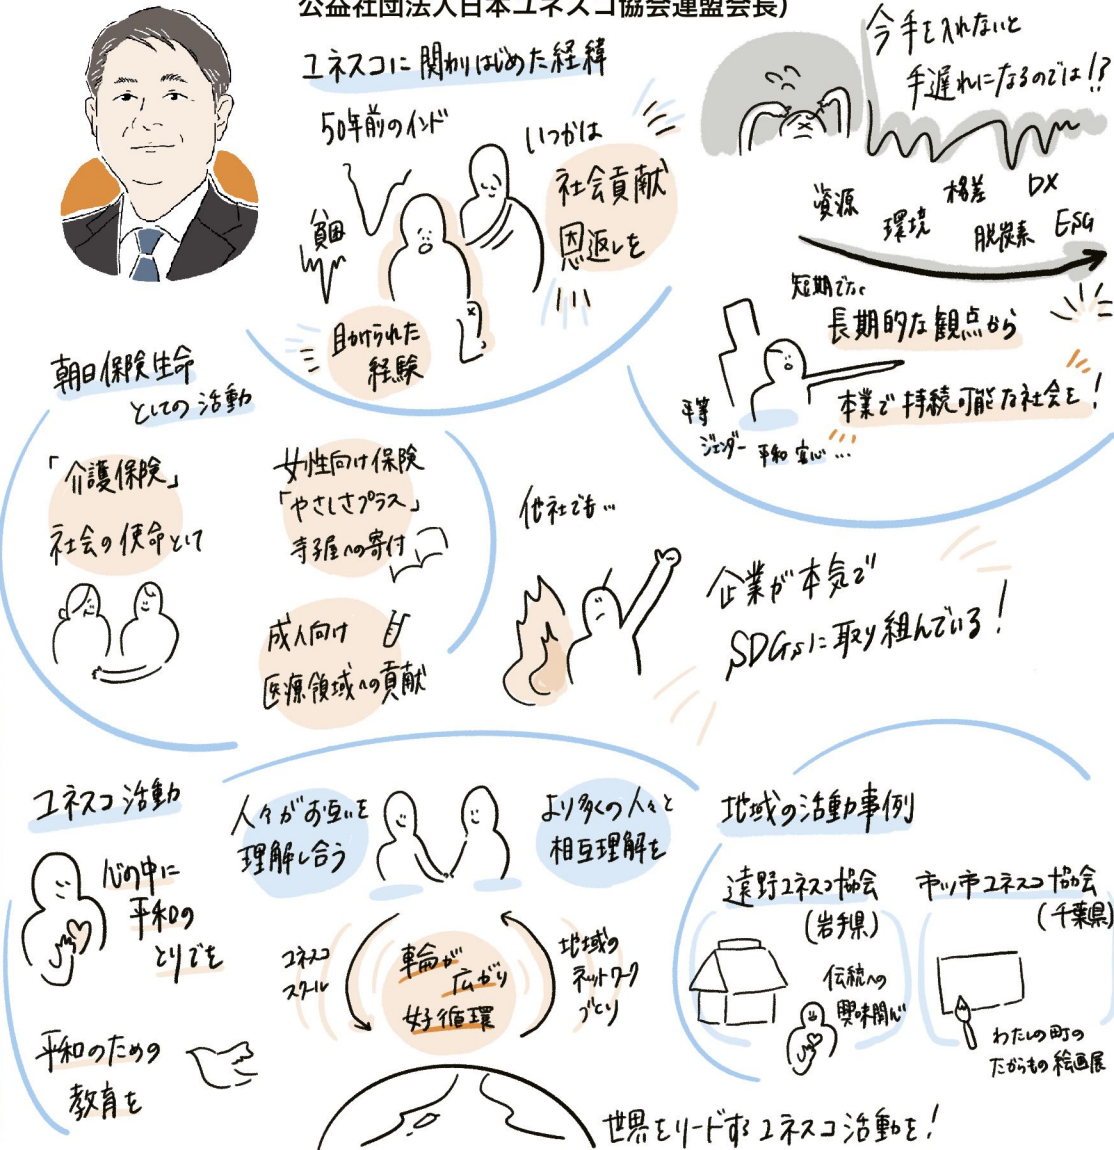 公益社団法人日本ユネスコ協会連盟会長)
ユネスコに関わりはじめた経緯
50年前のインド
貧困
いつかは
社会貢献
恩返しを
助けられた
経験
今手を入れないと
手遅れになるのでは!?
資源
環境
格差
脱炭素
DX
ESG
短期でなく
長期的な観点から
本業で持続可能な社会を!
平等
ジェンダー
平和 安心…
朝日保険生命
としての活動
「介護保険」
社会の使命として
女性向け保険
「やさしさプラス」
寺子屋への寄付
成人向け
医療領域への貢献
他社でも…
企業が本気で
SDGsに取り組んでいる!
ユネスコ活動
心の中に
平和の
とりでを
平和のための
教育を
人々がお互いを
理解し合う
より多くの人々と
相互理解を
ユネスコ
スクール
輪が
広がり
好循環
地域の
ネットワーク
づくり
世界をリードするユネスコ活動を!
地域の活動事例
遠野ユネスコ協会
(岩手県)
伝統への
興味関心
市川市ユネスコ協会
(千葉県)
わたしの町の
たからもの絵画展